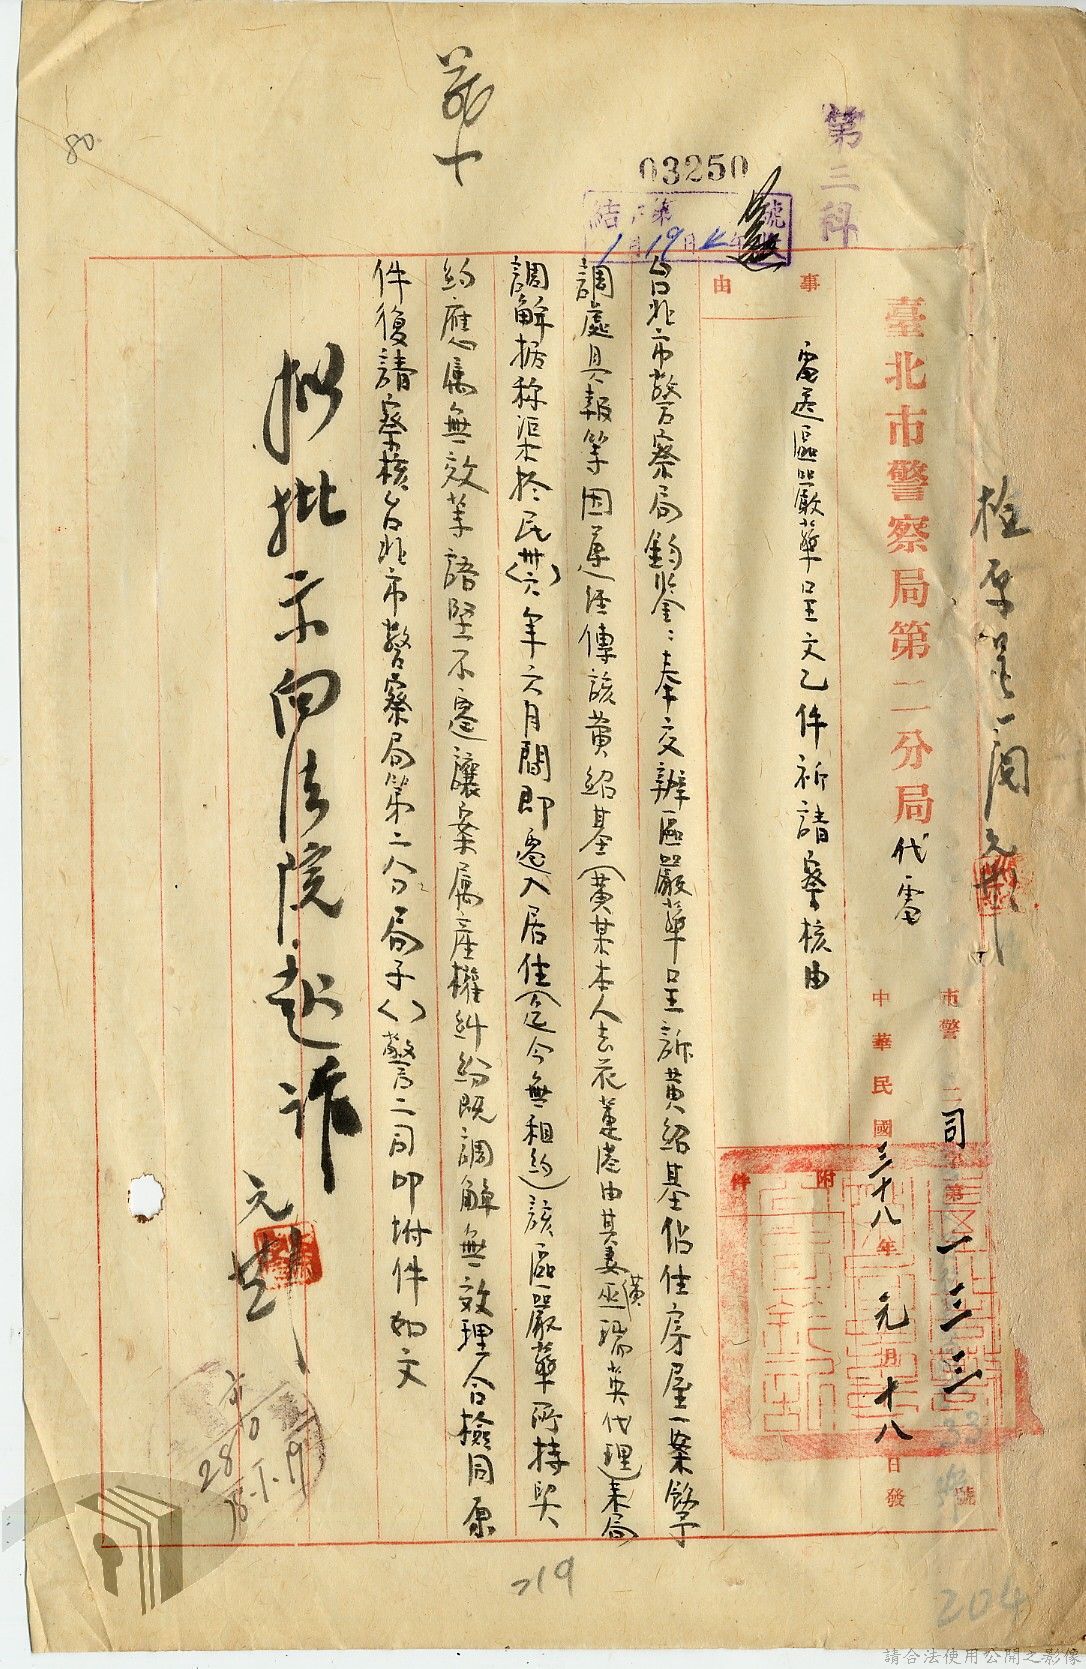 第三科
03250
結 第 號
1月19日
80
檢原呈一閱
臺北市警察局第二分局代電
市警二司字第一三三號
中華民國三十八年元月十八日發
附件
事由
電送區嚴華呈文乙件祈請察核由
台北市警察局鈞鑒：奉交辦區嚴華呈訴黃紹基佔住房屋一案飭
調處具報等因遵經傳該黃紹基（黃某本人去花蓮港由其妻黃巫瑞英代理）來局
調解据称渠於民（卅六）年六月間即遷入居住（迄今無租約）該區嚴華所持契
約應屬無效等語堅不遷讓案屬產權糾紛既調解無效理合檢同原
件復請察核台北市警察局第二分局子（）警二司叩附件如文
擬批示向法院起诉
219
204
請合法使用公開之影像